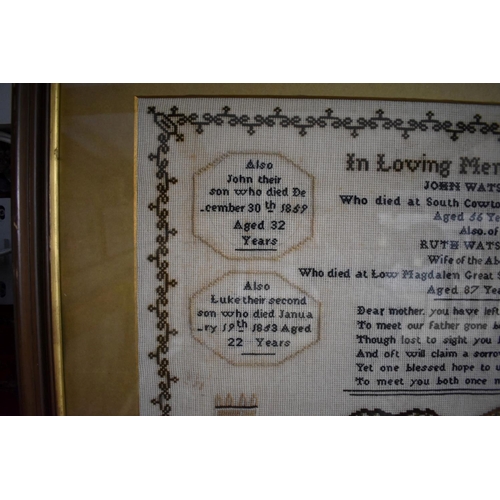 Also
John their
son who died De
-cember 30th 1859
Aged 32
Years
Also
Luke their second
son who died Janua
-ry 19th 1853 Aged
22 Years
In Loving Mem
JOHN WATS
Who died at South Cowto
Aged 56 Ye
Also of
RUTH WATS
Wife of the Ab
Who died at Low Magdalen Great S
Aged 87 Yea
Dear mother, you have left
To meet our father gone b
Though lost to sight you
And oft will claim a sorro
Yet one blessed hope to u
To meet you both once m